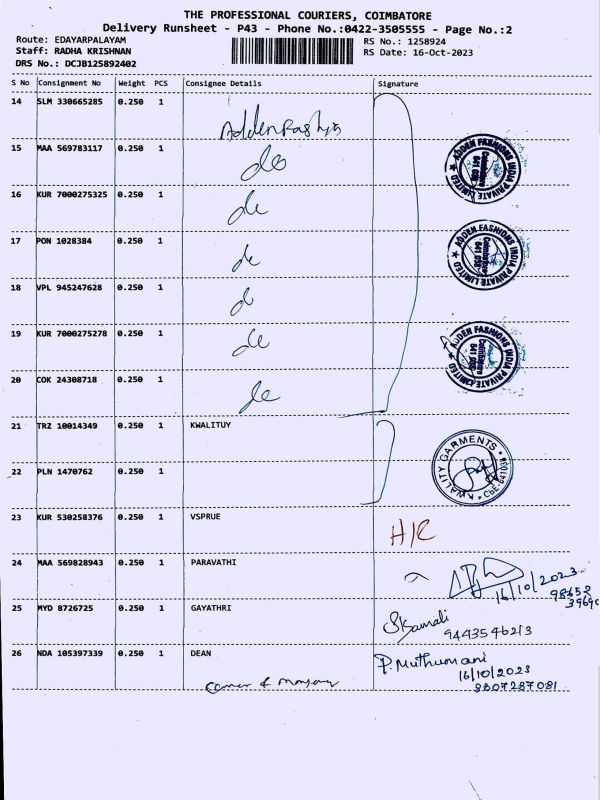 THE PROFESSIONAL COURIERS, COIMBATORE
Delivery Runsheet - P43 - Phone No.:0422-3505555 - Page No.:2
Route: EDAYARPALAYAM
RS No.: 1258924
Staff: RADHA KRISHNAN
RS Date: 16-Oct-2023
DRS No.: DCJB125892402
S No Consignment No Weight PCS Consignee Details Signature
14 SLM 330665285 0.250 1
15 MAA 569783117 0.250 1 do
16 KUR 7000275325 0.250 1 do
17 PON 1028384 0.250 1 do
18 VPL 945247628 0.250 1 do
19 KUR 7000275278 0.250 1 do
20 COK 24308718 0.250 1 do
ADDEN FASHIONS INDIA PRIVATE LIMITED
Coimbatore
ADDEN FASHIONS INDIA PRIVATE LIMITED
Coimbatore
ADDEN FASHIONS INDIA PRIVATE LIMITED
Coimbatore
21 TRZ 10014349 0.250 1 KWALITUY
22 PLN 1470762 0.250 1
KWALITY GARMENTS
23 KUR 530258376 0.250 1 VSPRUE H/R
24 MAA 569828943 0.250 1 PARAVATHI
16/10/2023
98652
25 MYD 8726725 0.250 1 GAYATHRI
26 NDA 105397339 0.250 1 DEAN P. Muthumani
16/10/2023
8807287081